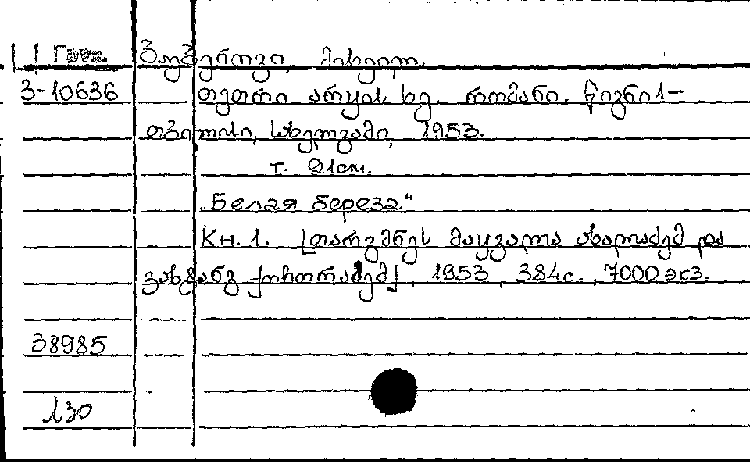 1 Груз. ბუბენოვი, მიხეილ.
3-10636 თეთრი არყის ხე. რომანი. წიგნი 1-
თბილისი, სახელგამი, 1953.
т. 21см.
„Белая береза“
Кн. 1. [თარგმნეს მაყვალა ახალაძემ და
ვახტანგ ქორორაძემ], 1953, 384с., 7000 экз.
38985
130